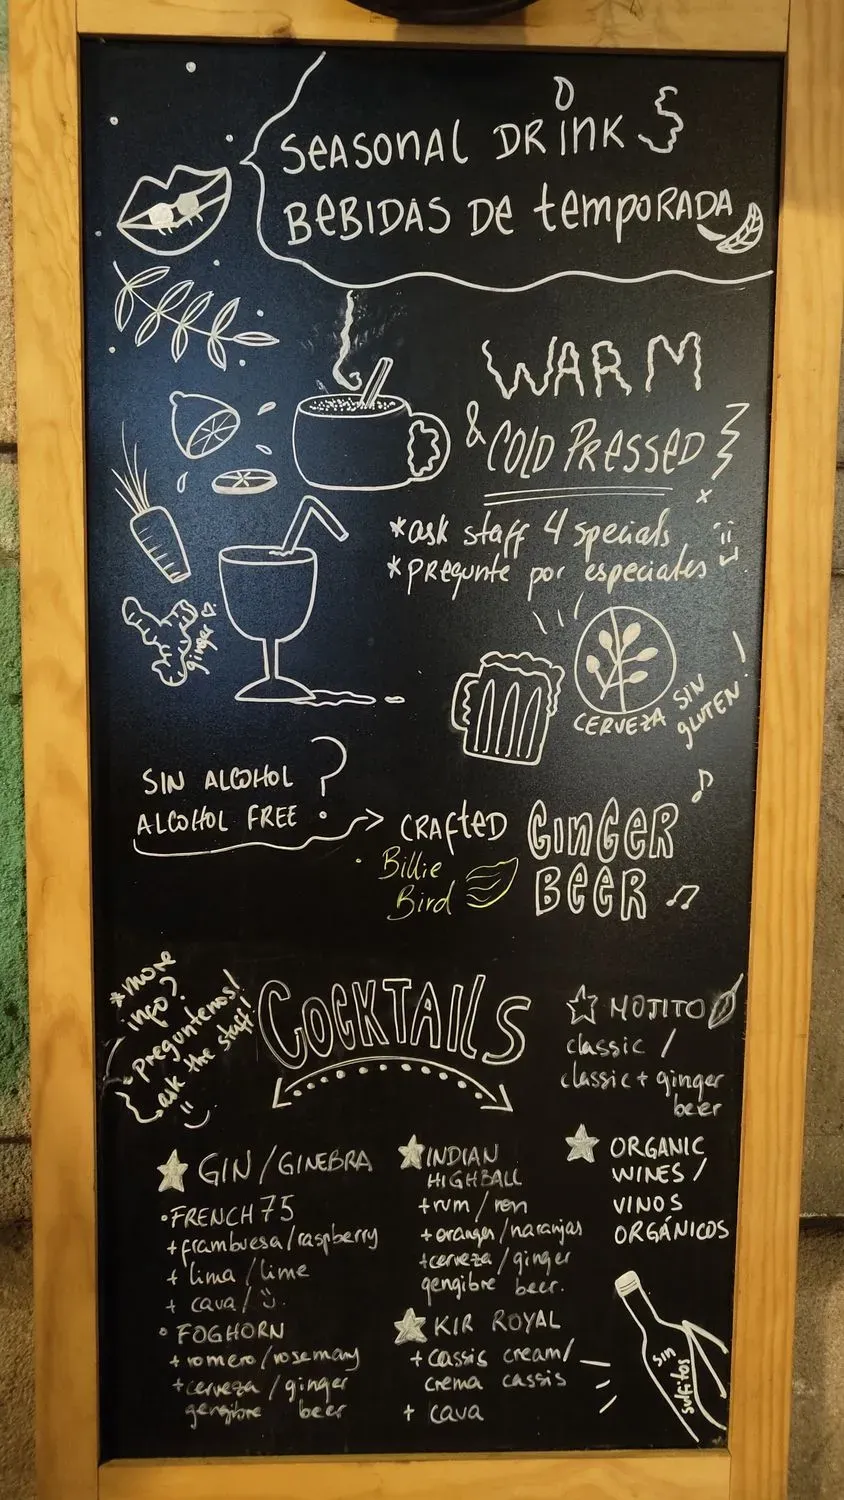 SEASONAL DRINKS
BEBIDAS DE temPORADA
WARM
& COLD PRESSED
*ask staff 4 specials
*pregunte por especiales
ginger
CERVEZA SIN
gLUTEN!
SIN ALCOHOL
ALCOHOL FREE ?
CRAfteD GINGER
BEER
Billie
Bird
*more
info?
preguntenos!
ask the staff!
COCKTAILS
MOJITO
classic /
classic + ginger
beer
GIN / GINEBRA
•FRENCH 75
+frambuesa/raspberry
+ lima / lime
+ cava /
• FOGHORN
+romero/rosemary
+cerveza / ginger
gengibre beer
INDIAN
HIGHBALL
+rum / ron
+oranges/naranjas
+cerveza / ginger
gengibre beer.
KIR ROYAL
+ cassis cream/
crema cassis
+ cava
ORGANIC
WINES /
VINOS
ORGÁNICOS
sin
sulfitos